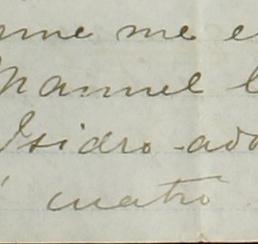 me e
Manuel
Isidro
cuatro